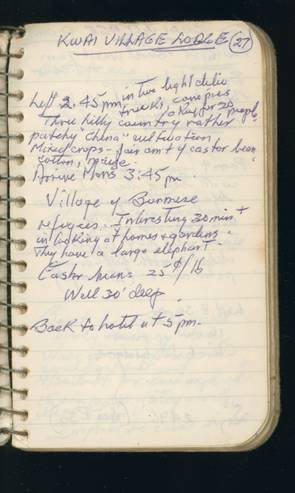 KWAI VILLAGE LODGE 27
Left 2.45 pm in two light delivery
trucks, canopies
taking for 20 people.
Thru hilly country rather
patchy "China" cultivation,
Mixed crops - fair amt of castor bean
cotton, maize.
Arrive Mons 3:45 pm.
Village of Burmese
refugees. Interesting 30 min
in looking at homes & gardens
They have a large elephant.
Castor beans 25¢/lb
Well 30' deep.
Back to hotel at 5 pm.